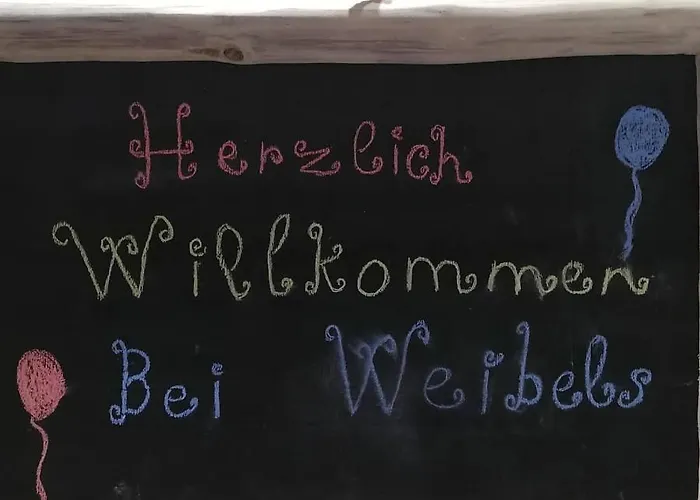 Herzlich
Willkommen
Bei Weibels